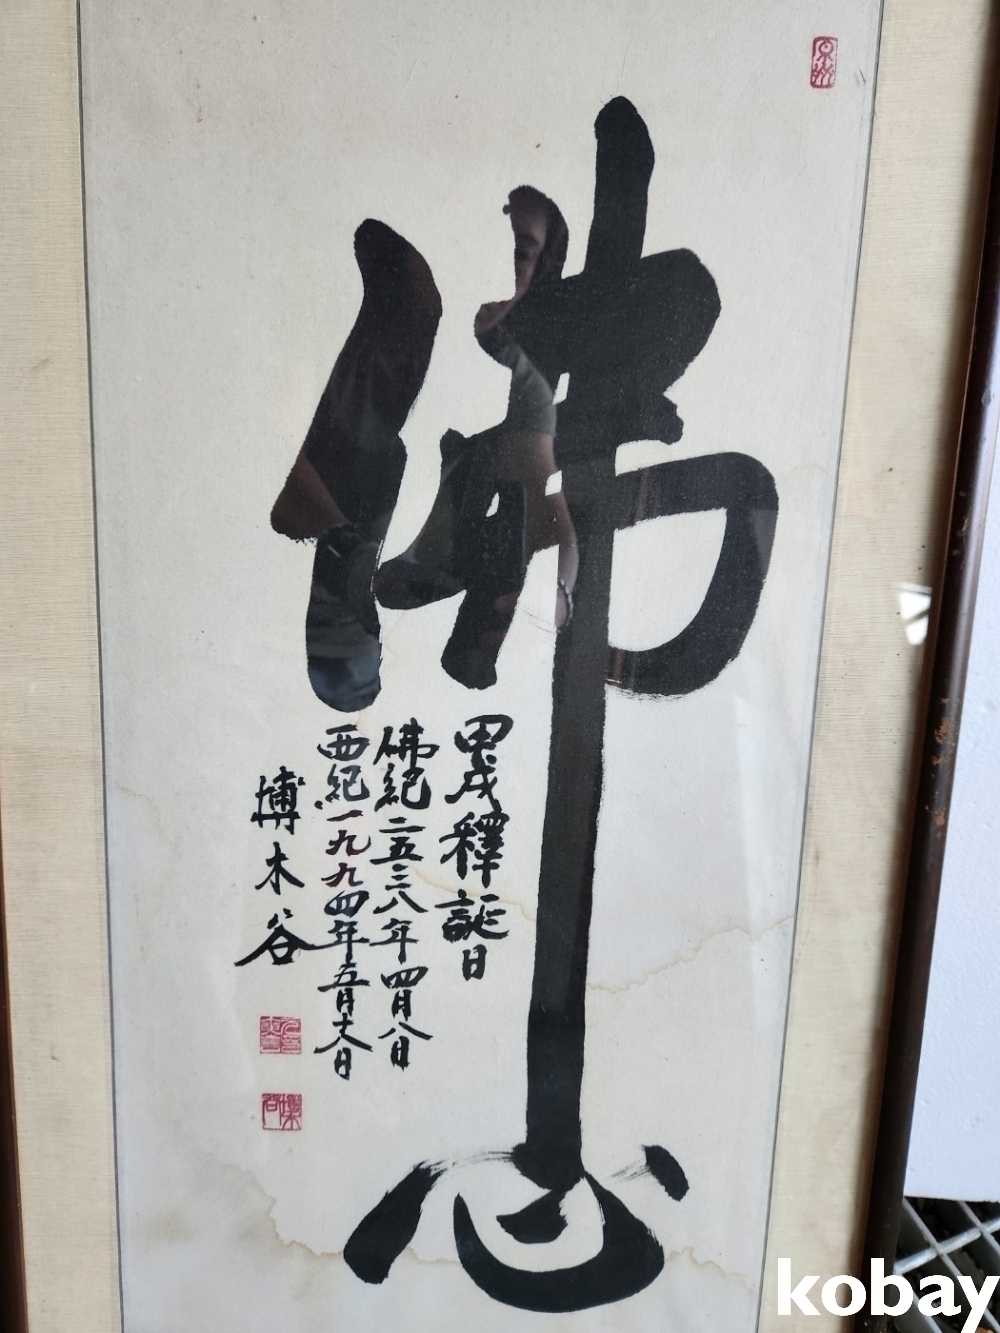 佛心
甲戌釋誕日
佛紀二五三八年四月八日
西紀一九九四年五月十八日
博木谷
kobay